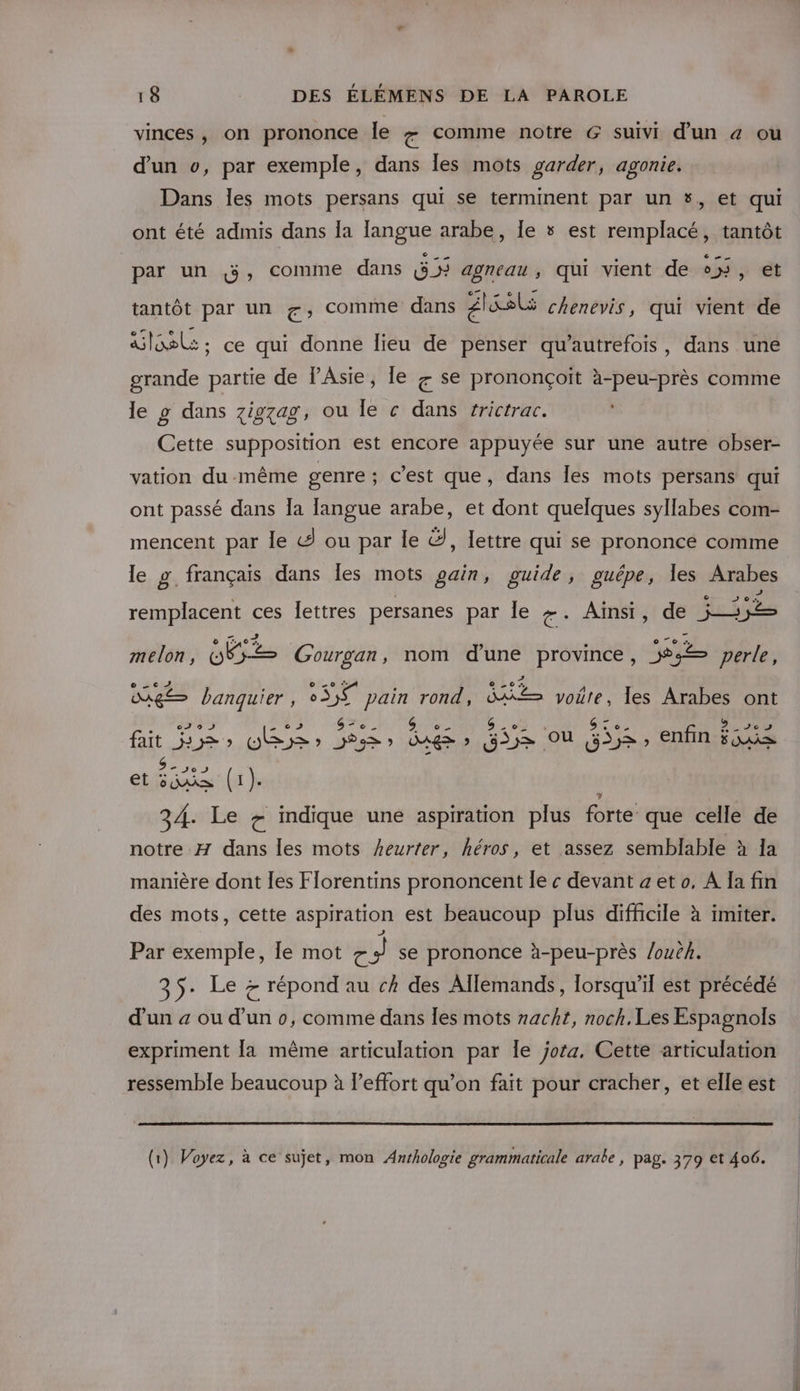 18 DES ÉLÉMENS DE LA PAROLE
vinces, on prononce le ج comme notre G suivi d'un a ou
d'un o, par exemple, dans les mots garder, agonie.
Dans les mots persans qui se terminent par un ه, et qui
ont été admis dans la langue arabe, le ه est remplacé, tantôt
par un ق, comme dans بَرَقْ agneau, qui vient de بَرَهْ, et
tantôt par un ج, comme dans شَاهْدَانَجْ chenevis, qui vient de
شَاهْدَانَهْ; ce qui donne lieu de penser qu'autrefois, dans une
grande partie de l'Asie, le ج se prononçoit à-peu-près comme
le g dans zigzag, ou le c dans trictrac.
Cette supposition est encore appuyée sur une autre obser-
vation du même genre; c'est que, dans les mots persans qui
ont passé dans la langue arabe, et dont quelques syllabes com-
mencent par le ك ou par le گ, lettre qui se prononce comme
le g français dans les mots gain, guide, guépe, les Arabes
remplacent ces lettres persanes par le ج. Ainsi, de
melon, Gourgan, nom d'une province, perle,
banquier, pain rond, voûte, les Arabes ont
fait ou , enfin
et (1).
34. Le ح indique une aspiration plus forte que celle de
notre H dans les mots heurter, héros, et assez semblable à la
manière dont les Florentins prononcent le c devant a et o. A la fin
des mots, cette aspiration est beaucoup plus difficile à imiter.
Par exemple, le mot لوح se prononce à-peu-près louèh.
35. Le خ répond au ch des Allemands, lorsqu'il est précédé
d'un a ou d'un o, comme dans les mots nacht, noch. Les Espagnols
expriment la même articulation par le jota. Cette articulation
ressemble beaucoup à l'effort qu'on fait pour cracher, et elle est
(1) Voyez, à ce sujet, mon Anthologie grammaticale arabe, pag. 379 et 406.